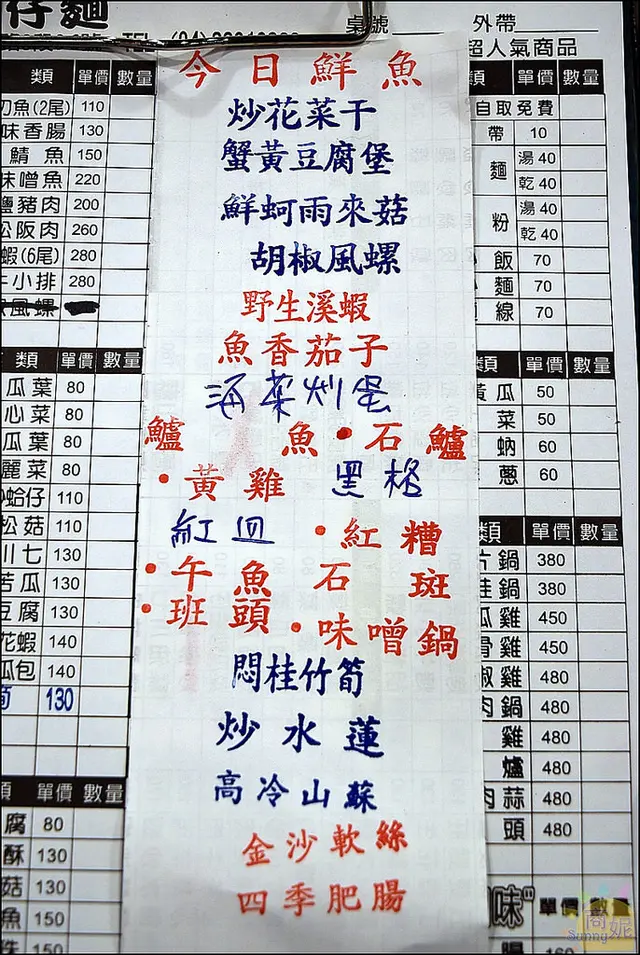 仔麵
TEL (04)
桌號 外帶
今日鮮魚
炒花菜干
蟹黃豆腐堡
鮮蚵雨來菇
胡椒風螺
野生溪蝦
魚香茄子
海菜炒蛋
鱸魚•石鱸
•黃雞 黑格
紅皿 •紅糟
•午魚 石斑
•班頭 •味噌鍋
悶桂竹筍
炒水蓮
高冷山蘇
金沙軟絲
四季肥腸
類 單價 數量
魚(2尾) 110
味香腸 130
鯖魚 150
味噌魚 220
鹽豬肉 200
松阪肉 260
蝦(6尾) 280
牛小排 280
風螺
類 單價 數量
瓜葉 80
心菜 80
瓜葉 80
麗菜 80
蛤仔 110
松菇 110
川七 130
苦瓜 130
豆腐 130
花蝦 140
瓜包 140
筍 130
單價 數量
腐 80
酥 130
菇 130
魚 150
150
超人氣商品
類 單價 數量
自取免費
帶 10
麵 湯 40
乾 40
粉 湯 40
乾 40
飯 70
麵 70
線 70
類 單價 數量
黃瓜 50
菜 50
蚋 60
蔥 60
類 單價 數量
片鍋 380
鍋 380
瓜雞 450
骨雞 450
椒雞 480
肉鍋 480
雞 480
爐 480
肉蒜 480
頭 480
味" 單價 數量
腸 160
Sunny 商妮